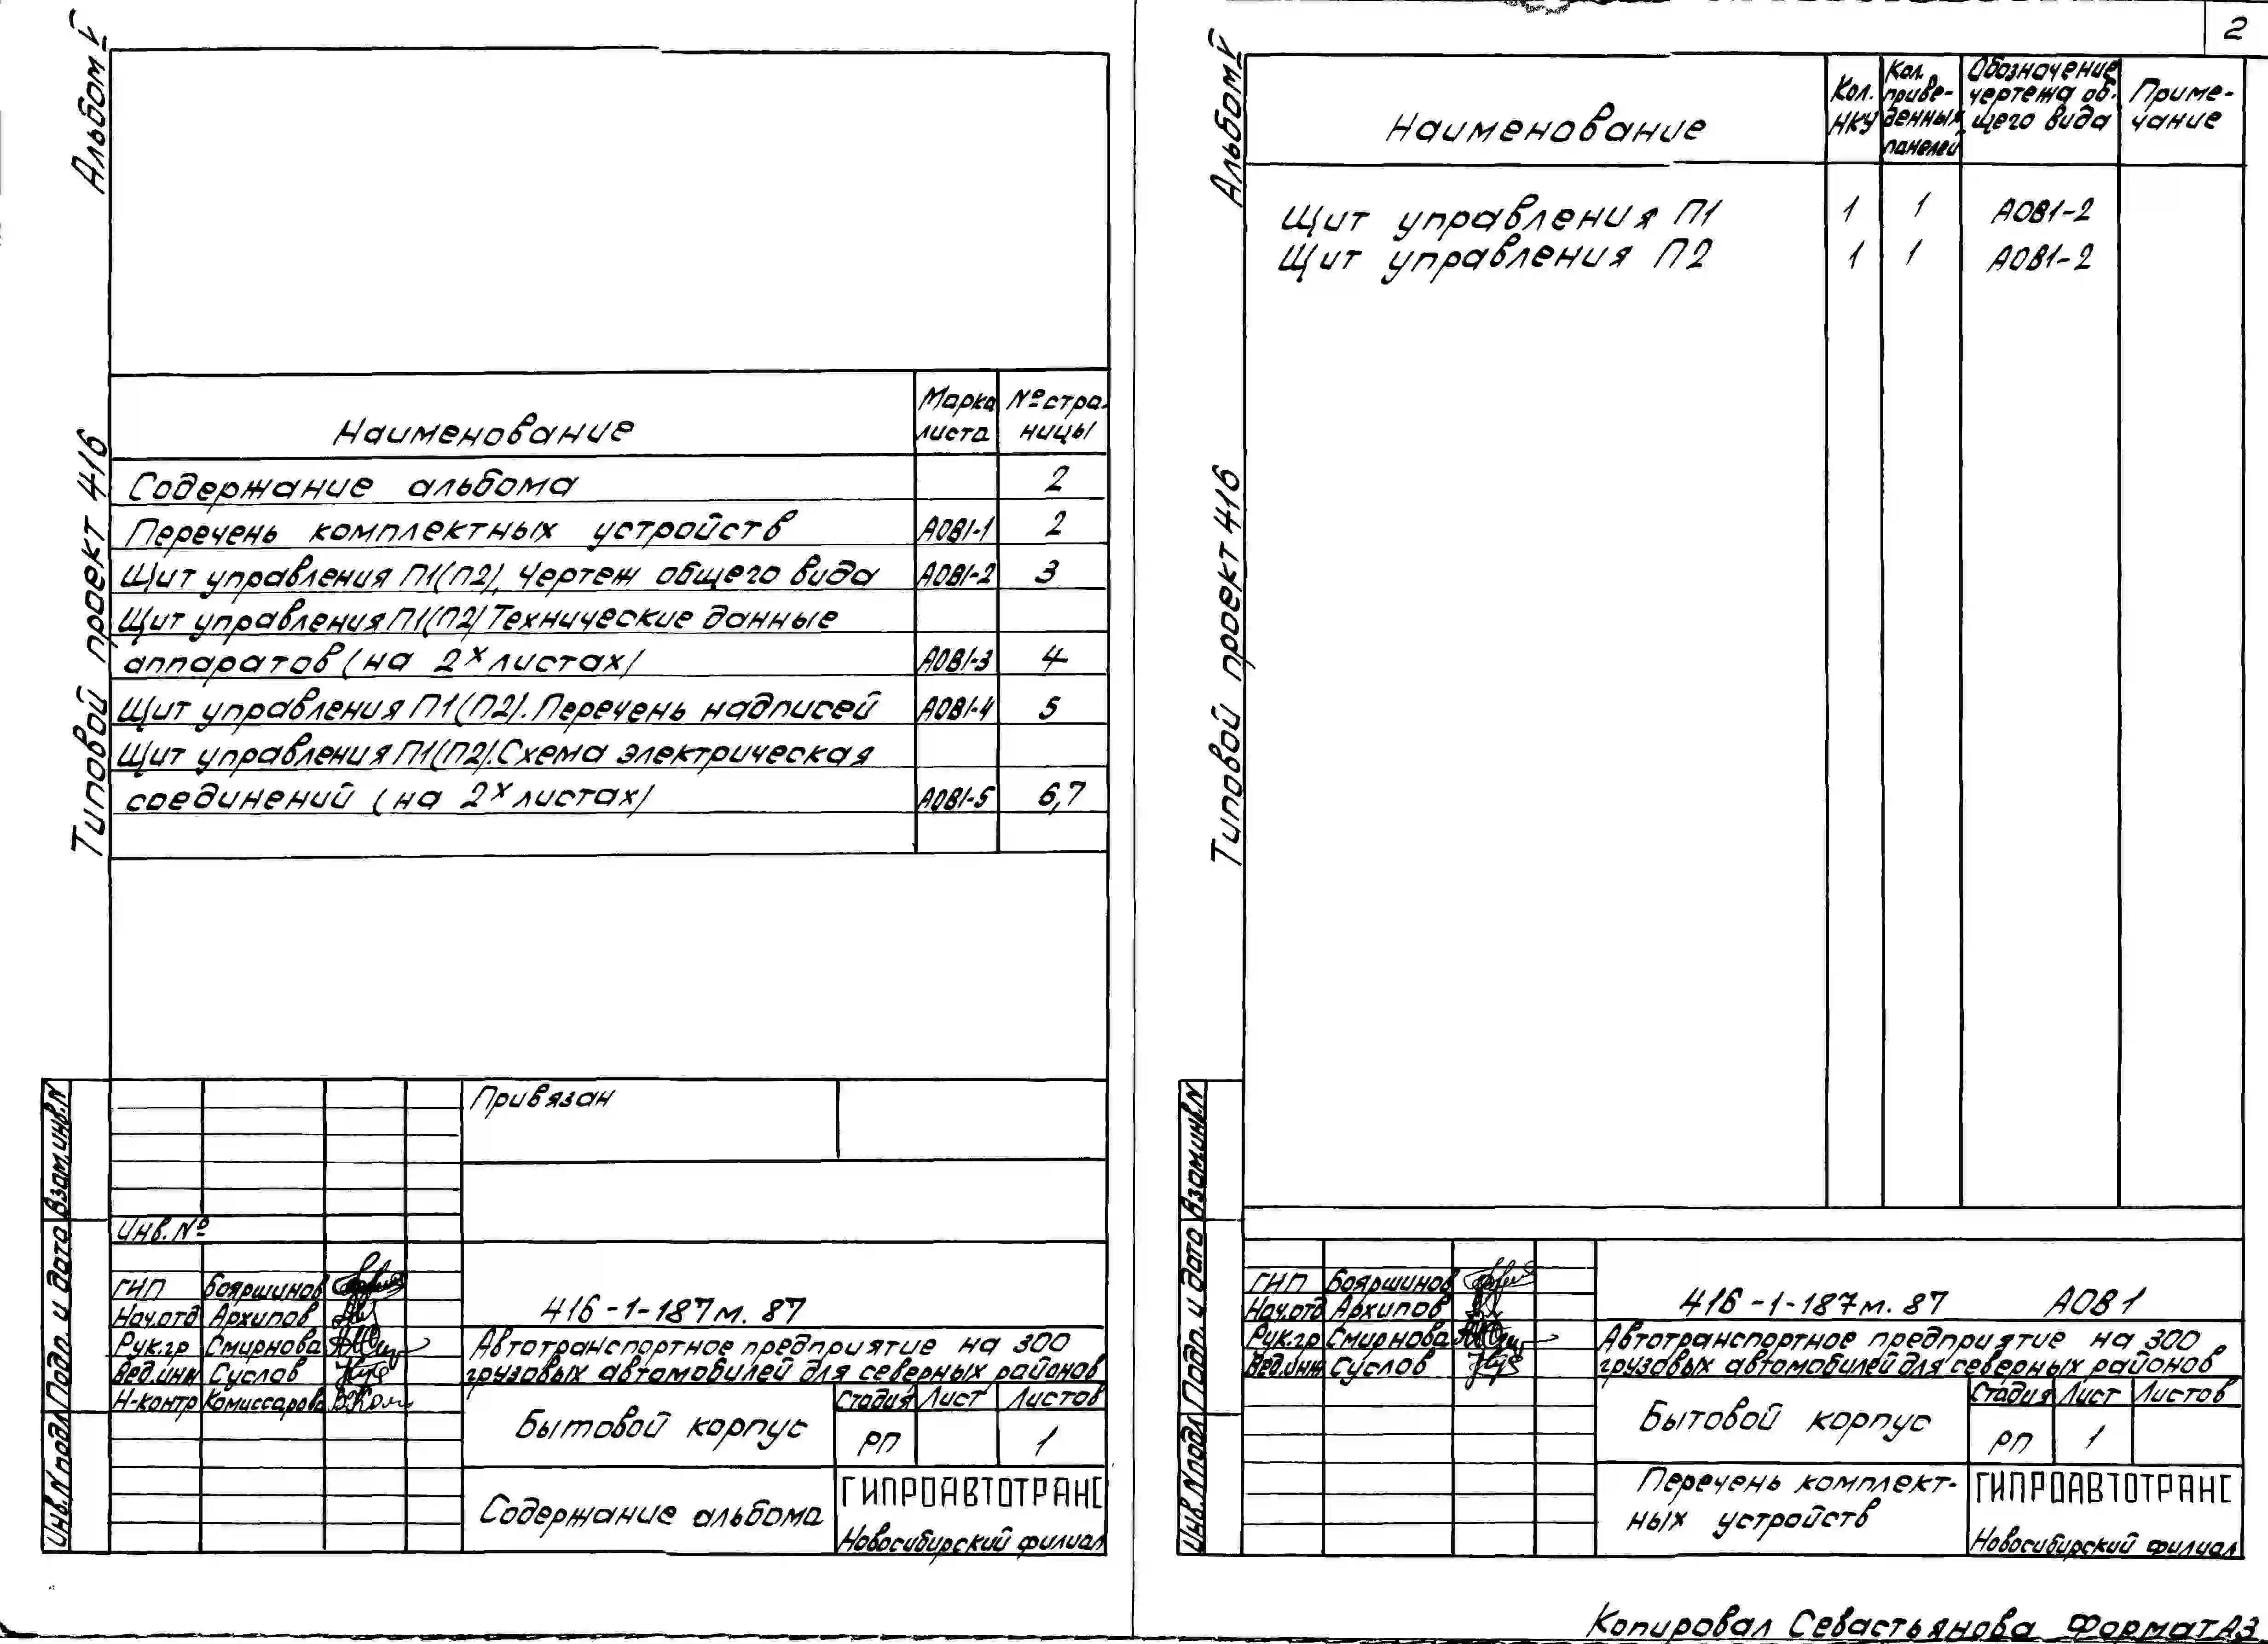 2
Альбом V
Типовой проект 416
Наименование
Марка листа
№ страницы
Содержание альбома 2
Перечень комплектных устройств АОВ1-1 2
Щит управления П1(П2), Чертеж общего вида АОВ1-2 3
Щит управления П1(П2) Технические данные
аппаратов (на 2х листах) АОВ1-3 4
Щит управления П1(П2). Перечень надписей АОВ1-4 5
Щит управления П1(П2). Схема электрическая
соединений (на 2х листах) АОВ1-5 6,7
Привязан
Инв. №
ГИП Бояршинов
Нач.отд Архипов
Рук.гр Смирнова
Вед.инж Суслов
Н-контр Комиссарова
416-1-187м.87
Автотранспортное предприятие на 300
грузовых автомобилей для северных районов
Бытовой корпус
Стадия Лист Листов
РП 1
Содержание альбома
ГИПРОАВТОТРАНС
Новосибирский филиал
Взам.инв.N
Подп. и дата
Инв.N подл
Альбом V
Типовой проект 416
Наименование
Кол. НКУ
Кол. приве-
денных
панелей
Обозначение
чертежа об-
щего вида
Приме-
чание
Щит управления П1 1 1 АОВ1-2
Щит управления П2 1 1 АОВ1-2
ГИП Бояршинов
Нач.отд Архипов
Рук.гр Смирнова
Вед.инж Суслов
416-1-187м.87 АОВ1
Автотранспортное предприятие на 300
грузовых автомобилей для северных районов
Бытовой корпус
Стадия Лист Листов
РП 1
Перечень комплект-
ных устройств
ГИПРОАВТОТРАНС
Новосибирский филиал
Взам.инв.N
Подп. и дата
Инв.N подл
Копировал Севастьянова Формат А3